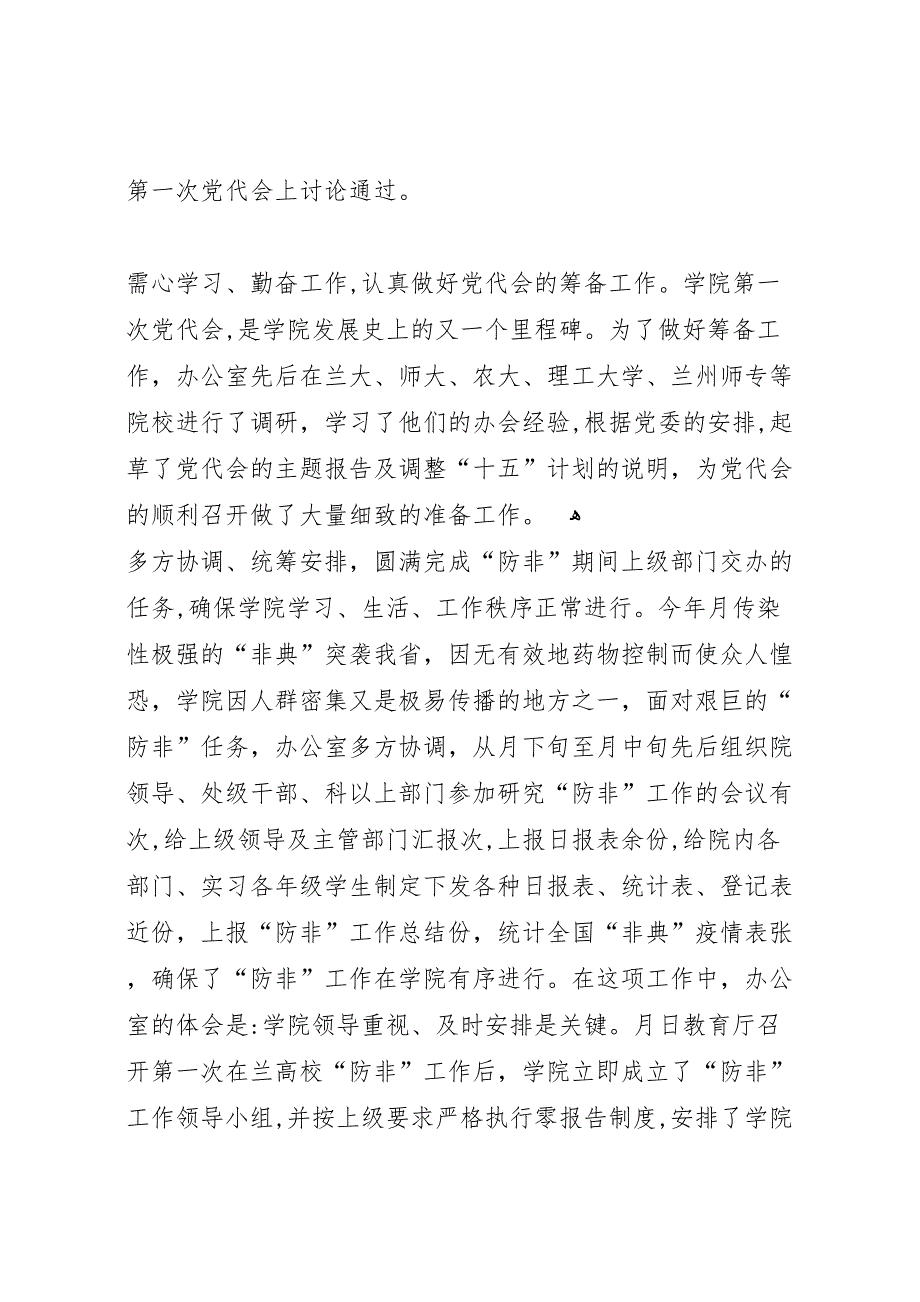 第一次党代会上讨论通过。
需心学习、勤奋工作,认真做好党代会的筹备工作。学院第一
次党代会,是学院发展史上的又一个里程碑。为了做好筹备工
作，办公室先后在兰大、师大、农大、理工大学、兰州师专等
院校进行了调研，学习了他们的办会经验,根据党委的安排,起
草了党代会的主题报告及调整“十五”计划的说明，为党代会
的顺利召开做了大量细致的准备工作。 ﻫ
多方协调、统筹安排，圆满完成“防非”期间上级部门交办的
任务,确保学院学习、生活、工作秩序正常进行。今年月传染
性极强的“非典”突袭我省，因无有效地药物控制而使众人惶
恐，学院因人群密集又是极易传播的地方之一，面对艰巨的“
防非”任务，办公室多方协调，从月下旬至月中旬先后组织院
领导、处级干部、科以上部门参加研究“防非”工作的会议有
次,给上级领导及主管部门汇报次,上报日报表余份,给院内各
部门、实习各年级学生制定下发各种日报表、统计表、登记表
近份，上报“防非”工作总结份，统计全国“非典”疫情表张
，确保了“防非”工作在学院有序进行。在这项工作中，办公
室的体会是:学院领导重视、及时安排是关键。月日教育厅召
开第一次在兰高校“防非”工作后，学院立即成立了“防非”
工作领导小组,并按上级要求严格执行零报告制度,安排了学院